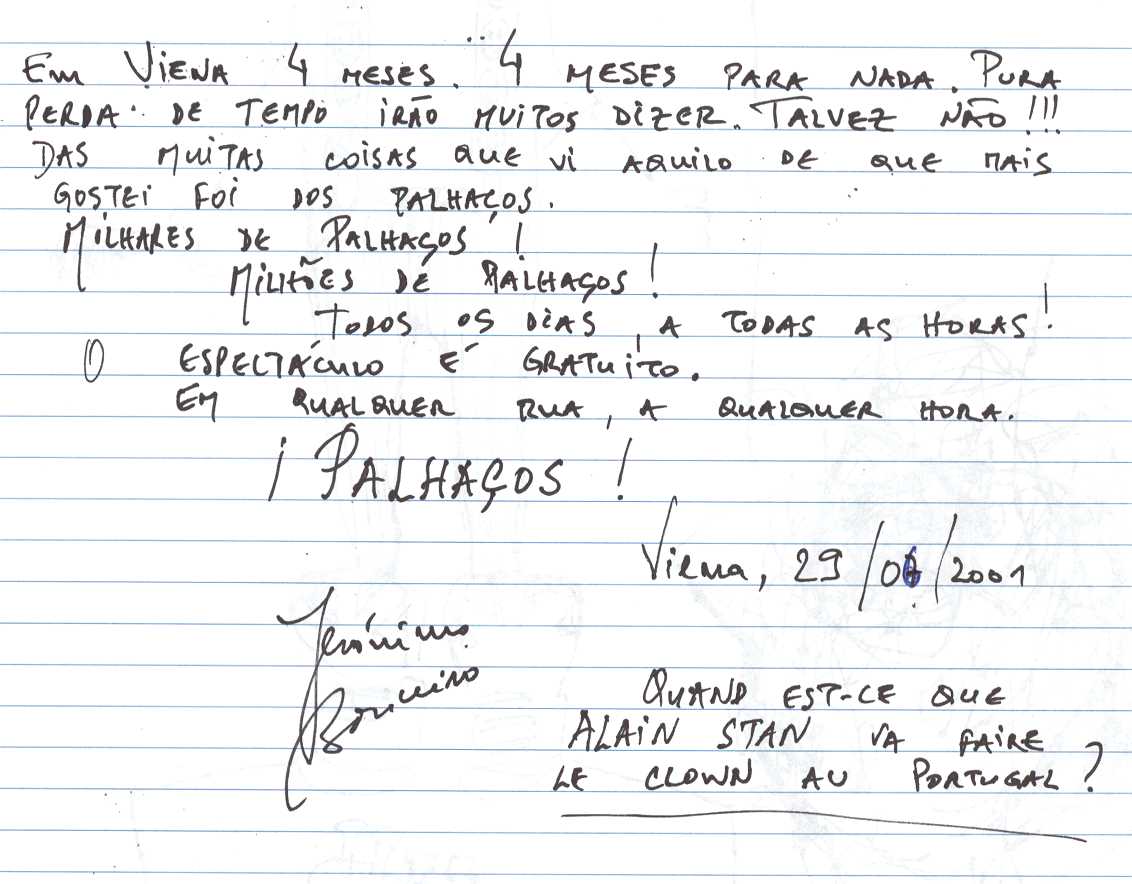 Em Viena 4 meses. 4 meses para nada. Pura
perda de tempo irão muitos dizer. Talvez não!!!
Das muitas coisas que vi aquilo de que mais
gostei foi dos palhaços.
Milhares de palhaços!
Milhões de palhaços!
Todos os dias, a todas as horas!
O espectáculo é gratuito.
Em qualquer rua, a qualquer hora.
¡Palhaços!
Viena, 29/ /2001
Jerónimo
Quand est-ce que
Alain Stan va faire
le clown au Portugal?